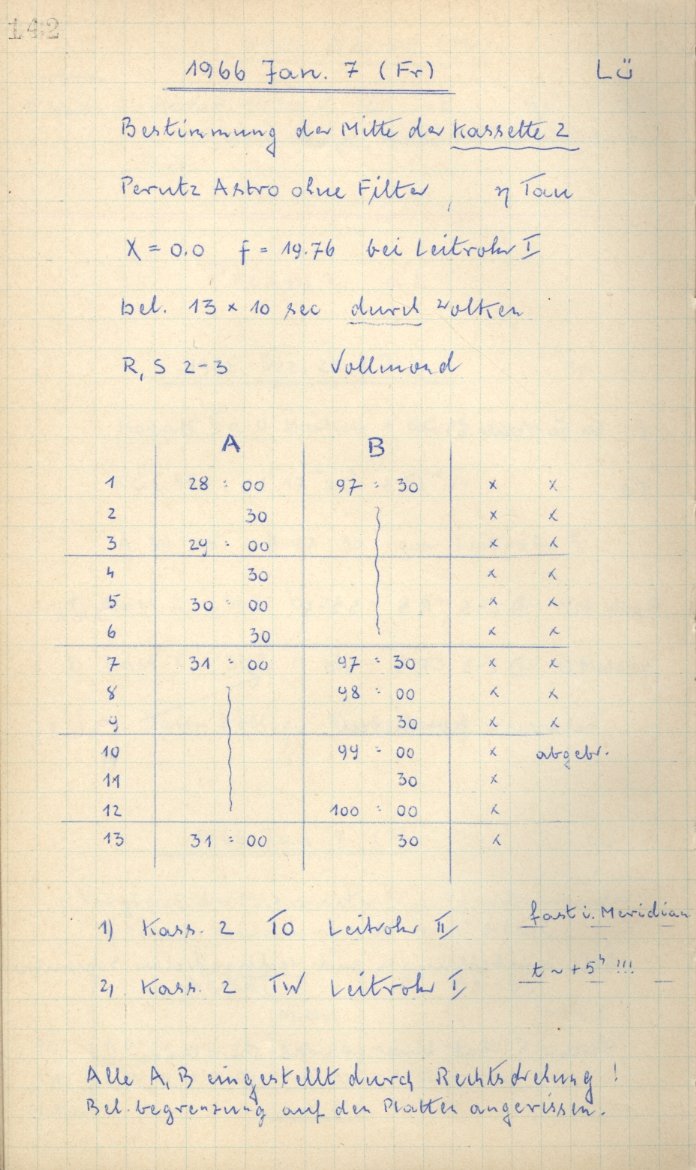 142
1966 Jan. 7 (Fr) Lü
Bestimmung der Mitte der Kassette 2
Perutz Astro ohne Filter, η Tau
X = 0.0 f = 19.76 bei Leitrohr I
bel. 13 × 10 sec durch Wolken
R, S 2-3 Vollmond
A B
1 28 : 00 97 : 30 x x
2 30 x x
3 29 : 00 x x
4 30 x x
5 30 : 00 x x
6 30 x x
7 31 : 00 97 : 30 x x
8 98 : 00 x x
9 30 x x
10 99 : 00 x abgebr.
11 30 x
12 100 : 00 x
13 31 : 00 30 x
1) Kass. 2 TO Leitrohr II fast i. Meridian
2) Kass. 2 TW Leitrohr I t ~ +5h !!!
Alle A, B eingestellt durch Rechtsdrehung !
Bel. begrenzung auf den Platten angerissen.